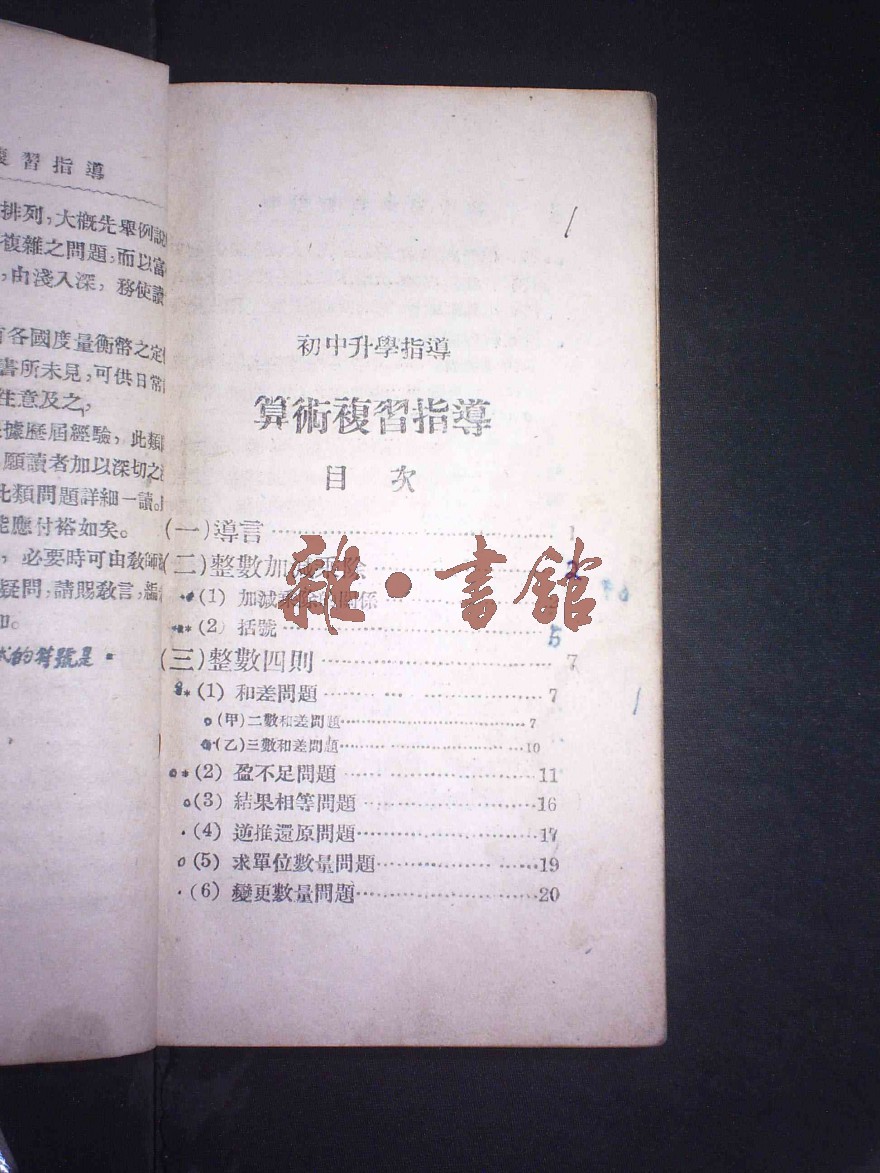 習指導
排列，大概先舉例說
複雜之問題，而以富
，由淺入深，務使讀
各國度量衡幣之定
書所未見，可供日常
生意及之，
據歷屆經驗，此類
願讀者加以深切之
此類問題詳細一讀。
能應付裕如矣。
，必要時可由敎師
疑問，請賜敎言，
的符號是
1
初中升學指導
算術複習指導
目次
(一)導言……1
(二)整數加減乘除……2
*(1) 加減乘除的關係
**(2) 括號……5
(三)整數四則……7
*(1) 和差問題……7
(甲)二數和差問題……7
(乙)三數和差問題……10
*(2) 盈不足問題……11
(3) 結果相等問題……16
(4) 逆推還原問題……17
(5) 求單位數量問題……19
(6) 變更數量問題……20
雜·書館